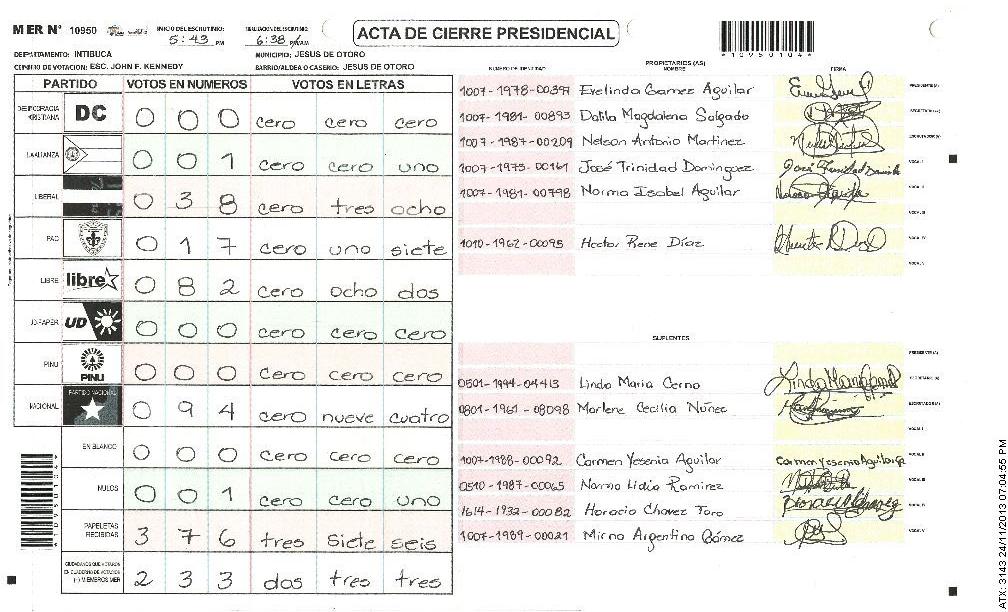 MER N° 10950 INICIO DEL ESCRUTINIO: 5:43 PM 6:38 PM/AM ACTA DE CIERRE PRESIDENCIAL
DEPARTAMENTO: INTIBUCA MUNICIPIO: JESUS DE OTORO *10950104*
CENTRO DE VOTACION: ESC. JOHN F. KENNEDY BARRIO/ALDEA O CASERIO: JESUS DE OTORO
PARTIDO VOTOS EN NUMEROS VOTOS EN LETRAS
DEMOCRACIA CRISTIANA DC 0 0 0 cero cero cero
LA ALIANZA 0 0 1 cero cero uno
LIBERAL 0 3 8 cero tres ocho
PAC 0 1 7 cero uno siete
LIBRE libre 0 8 2 cero ocho dos
UD-FAPER UD 0 0 0 cero cero cero
PINU PINU 0 0 0 cero cero cero
NACIONAL PARTIDO NACIONAL 0 9 4 cero nueve cuatro
EN BLANCO 0 0 0 cero cero cero
NULOS 0 0 1 cero cero uno
PAPELETAS RECIBIDAS 3 7 6 tres siete seis
CIUDADANOS QUE VOTARON EN CUADERNO DE VOTACION (+) MIEMBROS MER 2 3 3 dos tres tres
NUMERO DE IDENTIDAD PROPIETARIOS (AS) NOMBRE FIRMA
1007-1978-00397 Evelinda Gamez Aguilar PRESIDENTE(A)
1007-1981-00893 Dalila Magdalena Salgado SECRETARIO(A)
1007-1987-00209 Nelson Antonio Martinez ESCRUTADOR(A)
1007-1975-00161 José Trinidad Dominguez VOCAL I
1007-1981-00798 Norma Isabel Aguilar VOCAL II
VOCAL III
1010-1962-00095 Hector Rene Díaz VOCAL IV
VOCAL V
SUPLENTES
PRESIDENTE(A)
0501-1994-04413 Linda Maria Cerno SECRETARIO(A)
0801-1961-08098 Marlene Cecilia Núñez ESCRUTADOR(A)
VOCAL I
1007-1988-00092 Carmen Yesenia Aguilar Carmen Yesenia Aguilar VOCAL II
0510-1987-00065 Norma Lidia Ramirez VOCAL III
1614-1932-00082 Horacio Chavez Toro VOCAL IV
1007-1989-00021 Mirna Argentina Gómez VOCAL V
ATX: 3143 24/11/2013 07:04:55 PM